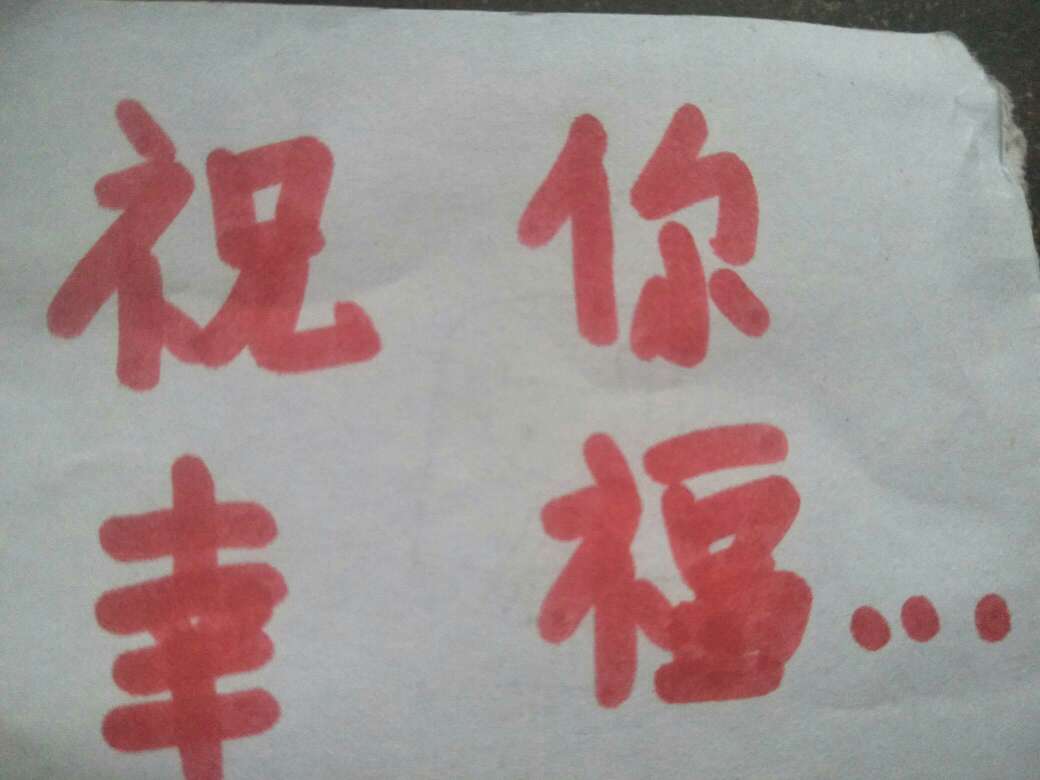 祝你
幸福...